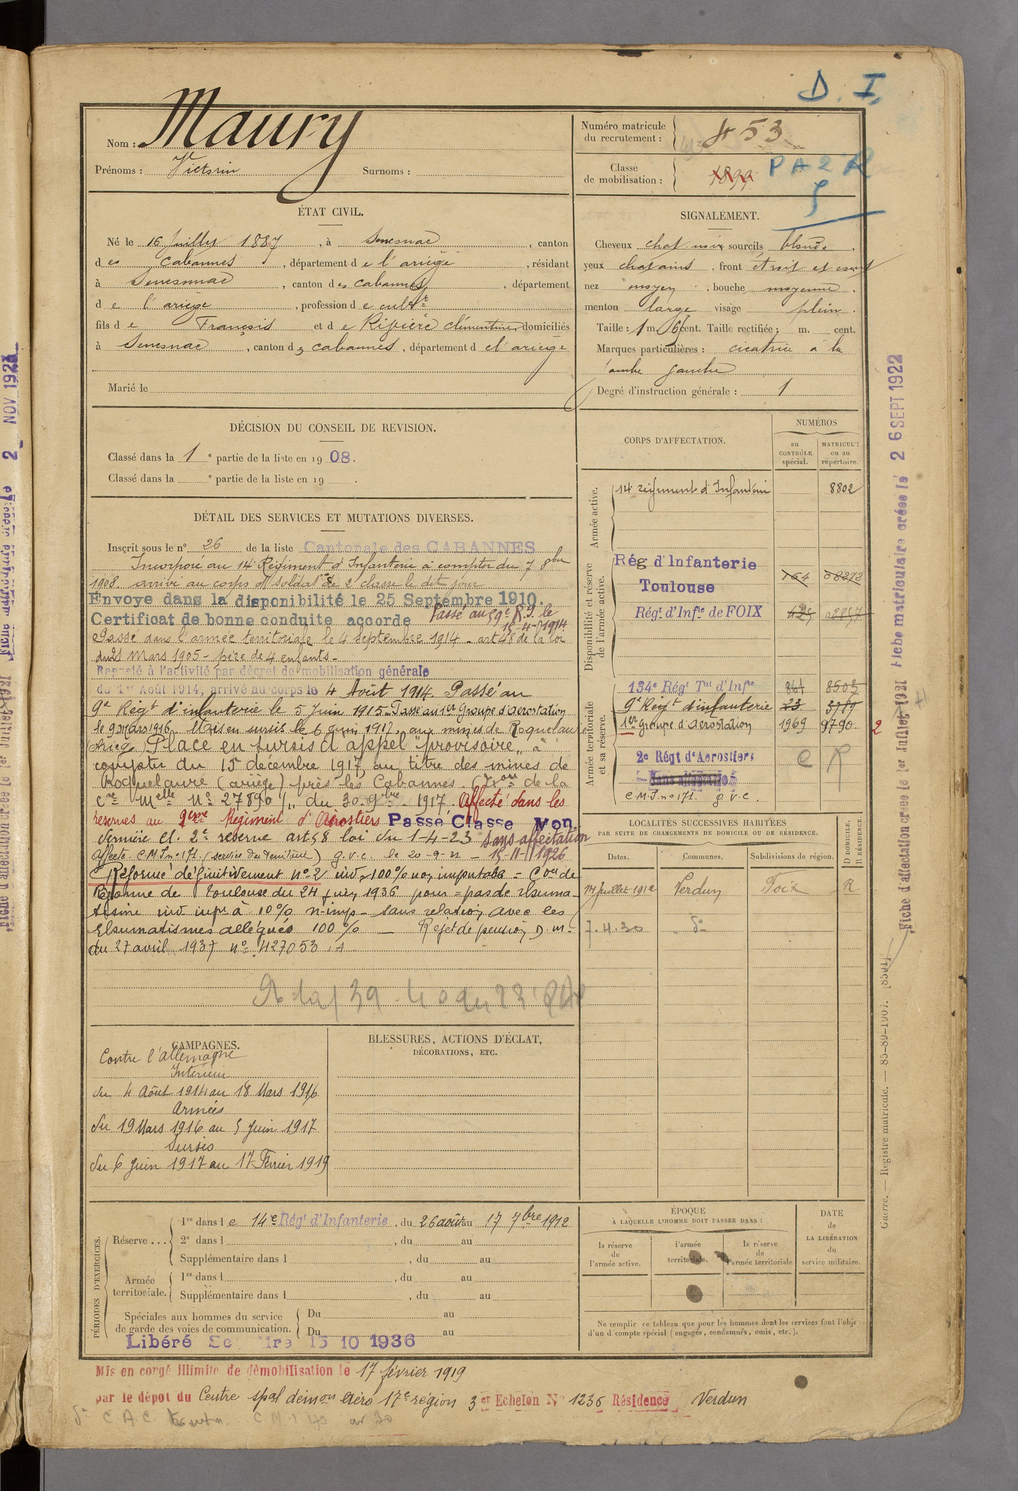 D. I.
Nom : Maury
Prénoms : Victorin Surnoms :
Numéro matricule
du recrutement : 453
Classe
de mobilisation : 1899
PA2R
5
ÉTAT CIVIL.
Né le 16 Juillet 1887, à Senesnac, canton
des Cabannes, département de l'ariège, résidant
à Senesnac, canton des cabannes, département
de l'ariège, profession de cultr
fils de François et de Rivière Clémentine domiciliés
à Senesnac, canton ds cabannes, département de l'ariège
Marié le
SIGNALEMENT.
Cheveux chat. noix sourcils blonds
yeux chatains, front étroit et
nez moyen, bouche moyenne,
menton large visage plein.
Taille : 1 m. 6 cent. Taille rectifiée : m. cent.
Marques particulières : cicatrice a la
jambe gauche
Degré d'instruction générale : 1
DÉCISION DU CONSEIL DE REVISION.
Classé dans la 1e partie de la liste en 1908.
Classé dans la e partie de la liste en 19 .
CORPS D'AFFECTATION.
NUMÉROS
au
CONTRÔLE
spécial.
MATRICULE
ou au
répertoire.
Armée active.
14 régiment d'Infanterie 8802
Disponibilité et réserve
de l'armée active.
Rég d'Infanterie
Toulouse 764
Rég. d'Infie de FOIX
Armée territoriale
et sa réserve.
134e Régt Tal d'Infie
9e Régt d'infanterie
1er groupe d'aérostation 1969 9790 2
2e Régt d'Aérostiers
Sans affectation
C.M.J. no 171. g.v.c.
DÉTAIL DES SERVICES ET MUTATIONS DIVERSES.
Inscrit sous le n° 26 de la liste Cantonale des CABANNES
Incorporé au 14 Régiment d'Infanterie à compter du 7 8bre
1908. arrivé au corps et soldat de 2e classe le dit jour
Envoyé dans la disponibilité le 25 Septembre 1910.
Certificat de bonne conduite accordé Passé au 59e R.I. le
15-4-1914
Passé dans l'armée territoriale le 4 septembre 1914 - art 48 de la loi
du 21 Mars 1905 - père de 4 enfants -
Rappelé à l'activité par décret de mobilisation générale
du 1er Août 1914, arrivé au corps le 4 Août 1914. Passé au
9e Régt d'infanterie le 5 Juin 1915. Passé au 1er Groupe d'aérostation
le 9 mars 1916. Mis en sursis le 6 juin 1917 aux mines de Roquelaure
Ariège Placé en sursis d'appel "provisoire" à
compter du 15 décembre 1917 au titre des mines de
Roquelaure (ariège) près les Cabannes. (Jxon de la
Cre Melle N° 27890) du 30 9bre 1917. Affecté dans les
réserves au 2ème Régiment d'Aérostiers Passé Classe von
dernière Cl. 2e réserve art 58 loi du 1-4-23 Sans affectation
affecté C.M.J no 171. (service du Territoire) g.v.c. le 15-11-1926
Réformé définitivement n° 2 inv. 100% non imputable - Con de
Réforme de Toulouse du 24 juin 1936 pour = pas de rhuma
tisme inv. infre à 10% n. imp - sans relation avec les
Rhumatismes allégués 100% - Rejet de pension D. m.
du 27 avril 1937 n° 427053
LOCALITÉS SUCCESSIVES HABITÉES
PAR SUITE DE CHANGEMENTS DE DOMICILE OU DE RÉSIDENCE.
Dates. Communes. Subdivisions de région. D DOMICILE. R RÉSIDENCE.
14 Juillet 1912 Verdun Foix R
7.4.30 do
CAMPAGNES.
Contre l'allemagne
Intérieur
du 4 Août 1914 au 18 Mars 1916
Armées
du 19 Mars 1916 au 5 Juin 1917
Sursis
du 6 Juin 1917 au 17 Février 1919
BLESSURES, ACTIONS D'ÉCLAT,
DÉCORATIONS, ETC.
PÉRIODES D'EXERCICES.
Réserve ...
1re dans le 14e Régt d'Infanterie, du 26 août au 17 7bre 1912
2e dans l , du au
Supplémentaire dans l , du au
Armée
territoriale.
1re dans l , du au
Supplémentaire dans l , du au
Spéciales aux hommes du service
de garde des voies de communication.
Du au
Du au
Libéré 15 10 1936
ÉPOQUE
À LAQUELLE L'HOMME DOIT PASSER DANS :
la réserve
de
l'armée active.
l'armée
territoriale.
la réserve
de
l'armée territoriale
DATE
de
LA LIBÉRATION
du
service militaire.
Ne remplir ce tableau que pour les hommes dont les services font l'objet
d'un décompte spécial (engagés, condamnés, omis, etc.).
Mis en congé illimité de démobilisation le 17 février 1919
par le dépôt du Centre spal démon aéro 17e région 3er Echelon N° 1236 Résidence Verdun
Guerre. — Registre matricule. — 85-80-1907. [8501]
Fiche d'affectation créée le 1er Juillet 1921 Fiche matriculaire créée le 26 SEPT 1922
2 NOV 1921